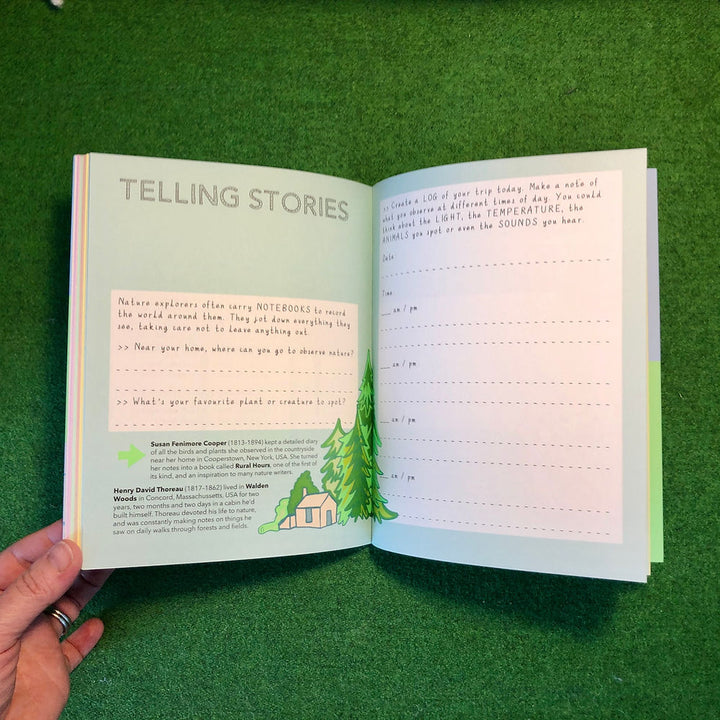 TELLING STORIES
Nature explorers often carry NOTEBOOKS to record
the world around them. They jot down everything they
see, taking care not to leave anything out
>> Near your home, where can you go to observe nature?
>> What's your favourite plant or creature to spot?
Susan Fenimore Cooper (1813-1894) kept a detailed diary
of all the birds and plants she observed in the countryside
near her home in Cooperstown, New York, USA. She turned
her notes into a book called Rural Hours, one of the first of
its kind, and an inspiration to many nature writers.
Henry David Thoreau (1817-1862) lived in Walden
Woods in Concord, Massachusetts, USA for two
years, two months and two days in a cabin he'd
built himself. Thoreau devoted his life to nature,
and was constantly making notes on things he
saw on daily walks through forests and fields.
>> Create a LOG of your trip today. Make a note of
what you observe at different times of day. You could
think about the LIGHT, the TEMPERATURE, the
ANIMALS you spot or even the SOUNDS you hear.
Date
Time
__ am / pm
__ am / pm
__ am / pm
__ am / pm